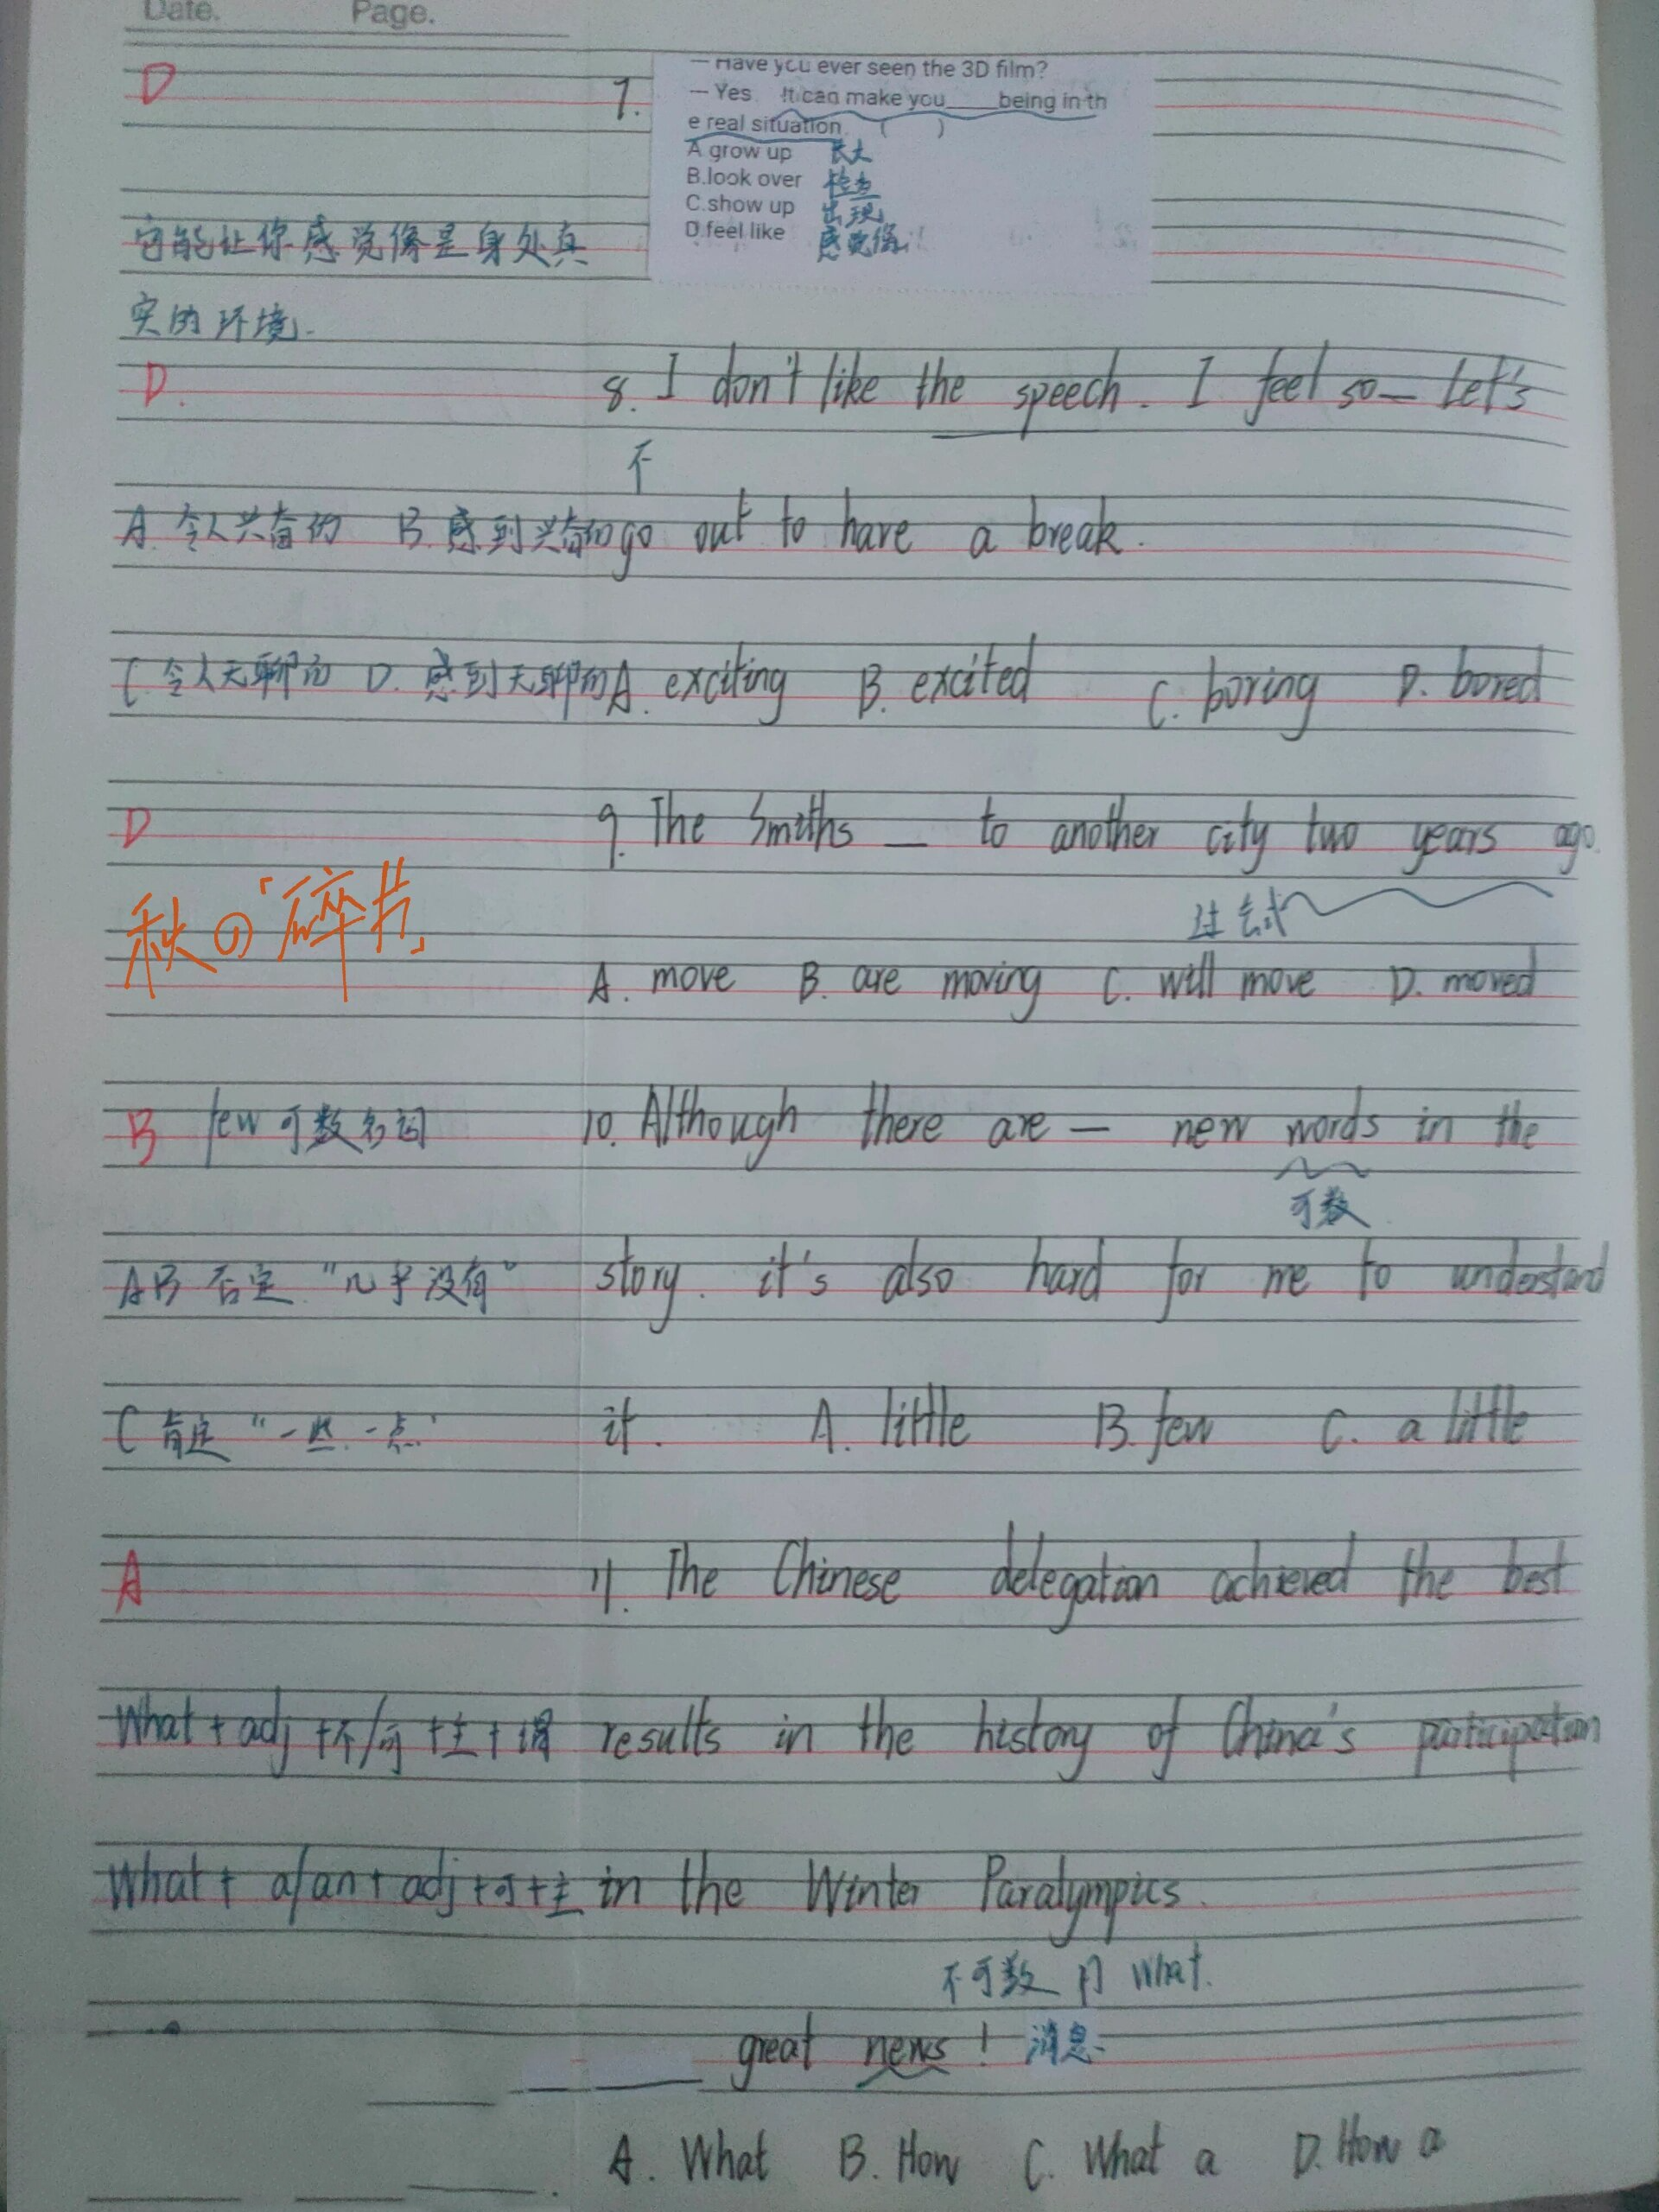 Date. Page.
D 7. — Have you ever seen the 3D film?
— Yes. It can make you____being in th
e real situation. ( )
A grow up 长大
B.look over 检查
C.show up 出现
D.feel like 感觉像
它能让你感觉像是身处真
实的环境.
D. 8. I don't like the speech. I feel so— Let's
不
A. 令人兴奋的 B. 感到兴奋的 go out to have a break.
C 令人无聊的 D. 感到无聊的 A. exciting B. excited C. boring D. bored
D 9. The Smiths — to another city two years ago.
过去式
秋の「碎片」
A. move B. are moving C. will move D. moved
B few 可数名词 10. Although there are — new words in the
可数
AB 否定 "几乎没有" story. it's also hard for me to understand
C 肯定 "一些.一点" it. A. little B. few C. a little
A 11. The Chinese delegation achieved the best
What + adj +不/可 +主+谓 results in the history of China's participation
What + a/an + adj +可+主 in the Winter Paralympics.
不可数 用 What.
____ great news! 消息
A. What B. How C. What a D. How a